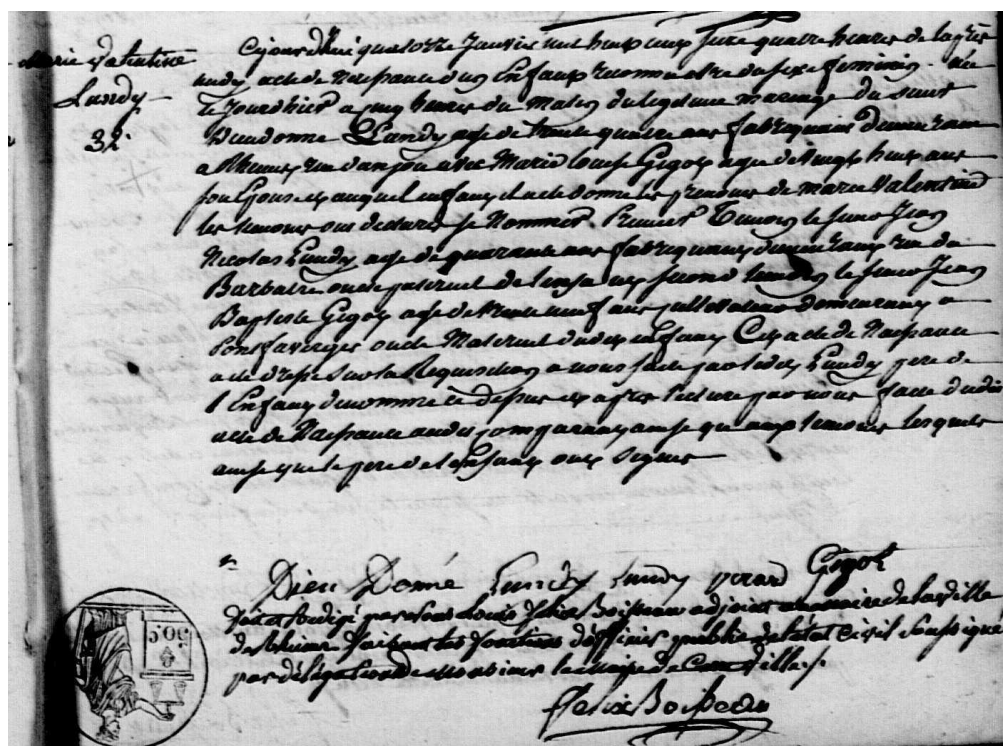 Marie Valentine
Lundy
32.
Cejourdhui quatorze Janvier mil huit cent seize quatre heures de
acte de Naissance d'un Enfant reconnu etre du sexe feminin. né
le jourdhier a cinq heures du matin du legitime mariage du sieur
Dieudonné Lundy agé de trente quatre ans fabriquant demeurant
a Rheims rue avec Marie Louise Gigot agé de vingt huit ans
son Epouse et auquel enfant il a été donné les prenoms de marie Valentine
les temoins ont declaré se Nommer Premier Temoin le sieur Jean
Nicolas Lundy agé de quarante ans fabriquant demeurant rue du
Barbatre oncle paternel de l'enfant, second temoin le sieur Jean
Baptiste Gigot agé de trente neuf ans demeurant a
Pontfaverger oncle Maternel dudit enfant Cet acte de Naissance
a été dressé sur la Requisition a nous faite par ledit Lundy pere de
l'Enfant denommé cy dessus et apres lecture par nous faite dudit
acte de Naissance audit comparant ainsi qu'aux temoins lesquels
ainsi que le pere de l'enfant ont signés
Dieu Donné Lundy Lundy Gigot
fait et Redigé par Nous Louis Felix Boisseau adjoint a maire de la Ville
de Rheims faisant les fonctions d'officier public de l'état Civil soussigné
par délégation de Monsieur le Maire de Cette Ville./.
Felix Boisseau
50C.